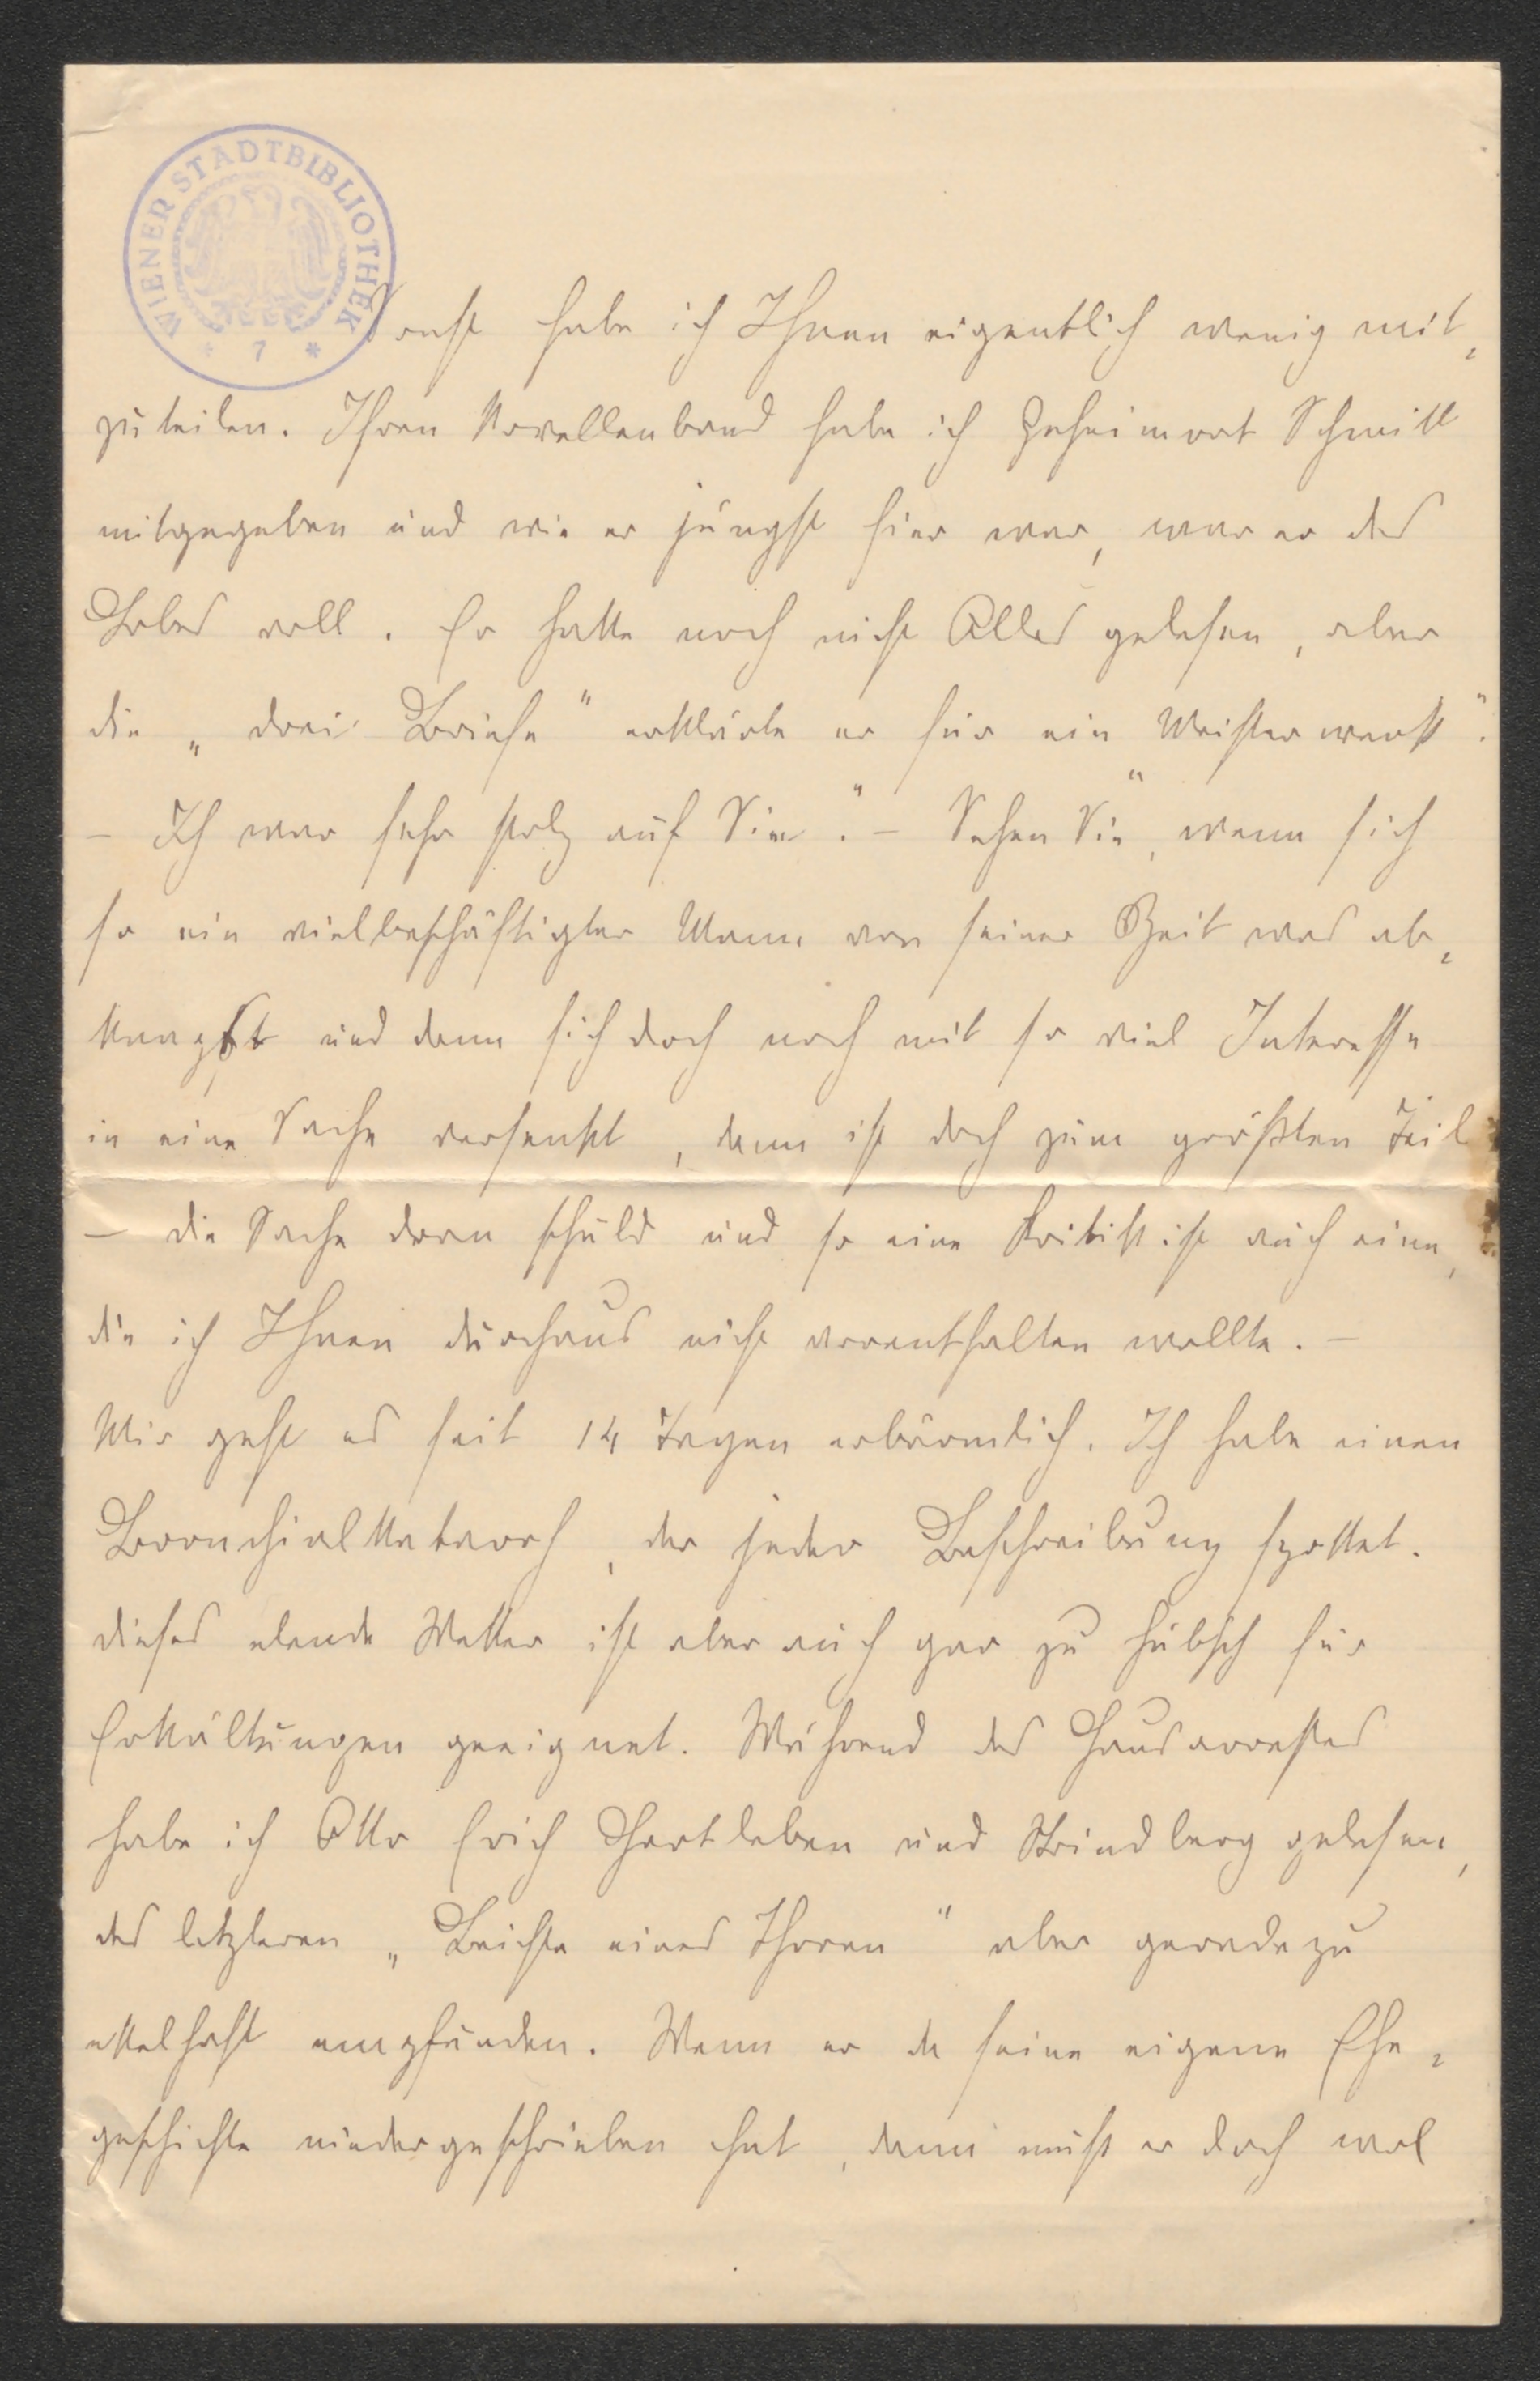 WIENER STADTBIBLIOTHEK
* 7 *
Sonst habe ich Ihnen eigentlich wenig mit-
zuteilen. Ihren Novellenband habe ich Geheimrat Schmitt
mitgegeben und wie er jüngst hier war, war er des
Lobes voll. Er hatte noch nicht Alles gelesen, aber
die „drei Briefe" erklärte er für ein Meisterwerk".
– Ich war sehr stolz auf Sie". – Sehen Sie", wenn sich
so ein vielbeschäftigter Mann von seiner Zeit was ab-
knapst und dann sich doch noch mit so viel Interesse
in eine Sache versenkt, dann ist doch zum größten Teil
– die Sache dran schuld und so eine Kritik ist auch eine,
die ich Ihnen durchaus nicht vorenthalten wollte. –
Mir geht es seit 14 Tagen erbärmlich. Ich habe einen
Bronchialkatarrh, der jeder Beschreibung spottet.
Dieses elende Wetter ist aber auch gar zu hübsch für
Erkältungen geeignet. Während des Hausarrestes
habe ich Otto Erich Hartleben und Strindberg gelesen,
des letzteren „Beichte eines Thoren" aber geradezu
ekelhaft empfunden. Wenn er da seine eigene Ehe-
geschichte niedergeschrieben hat, dann muß er doch wol